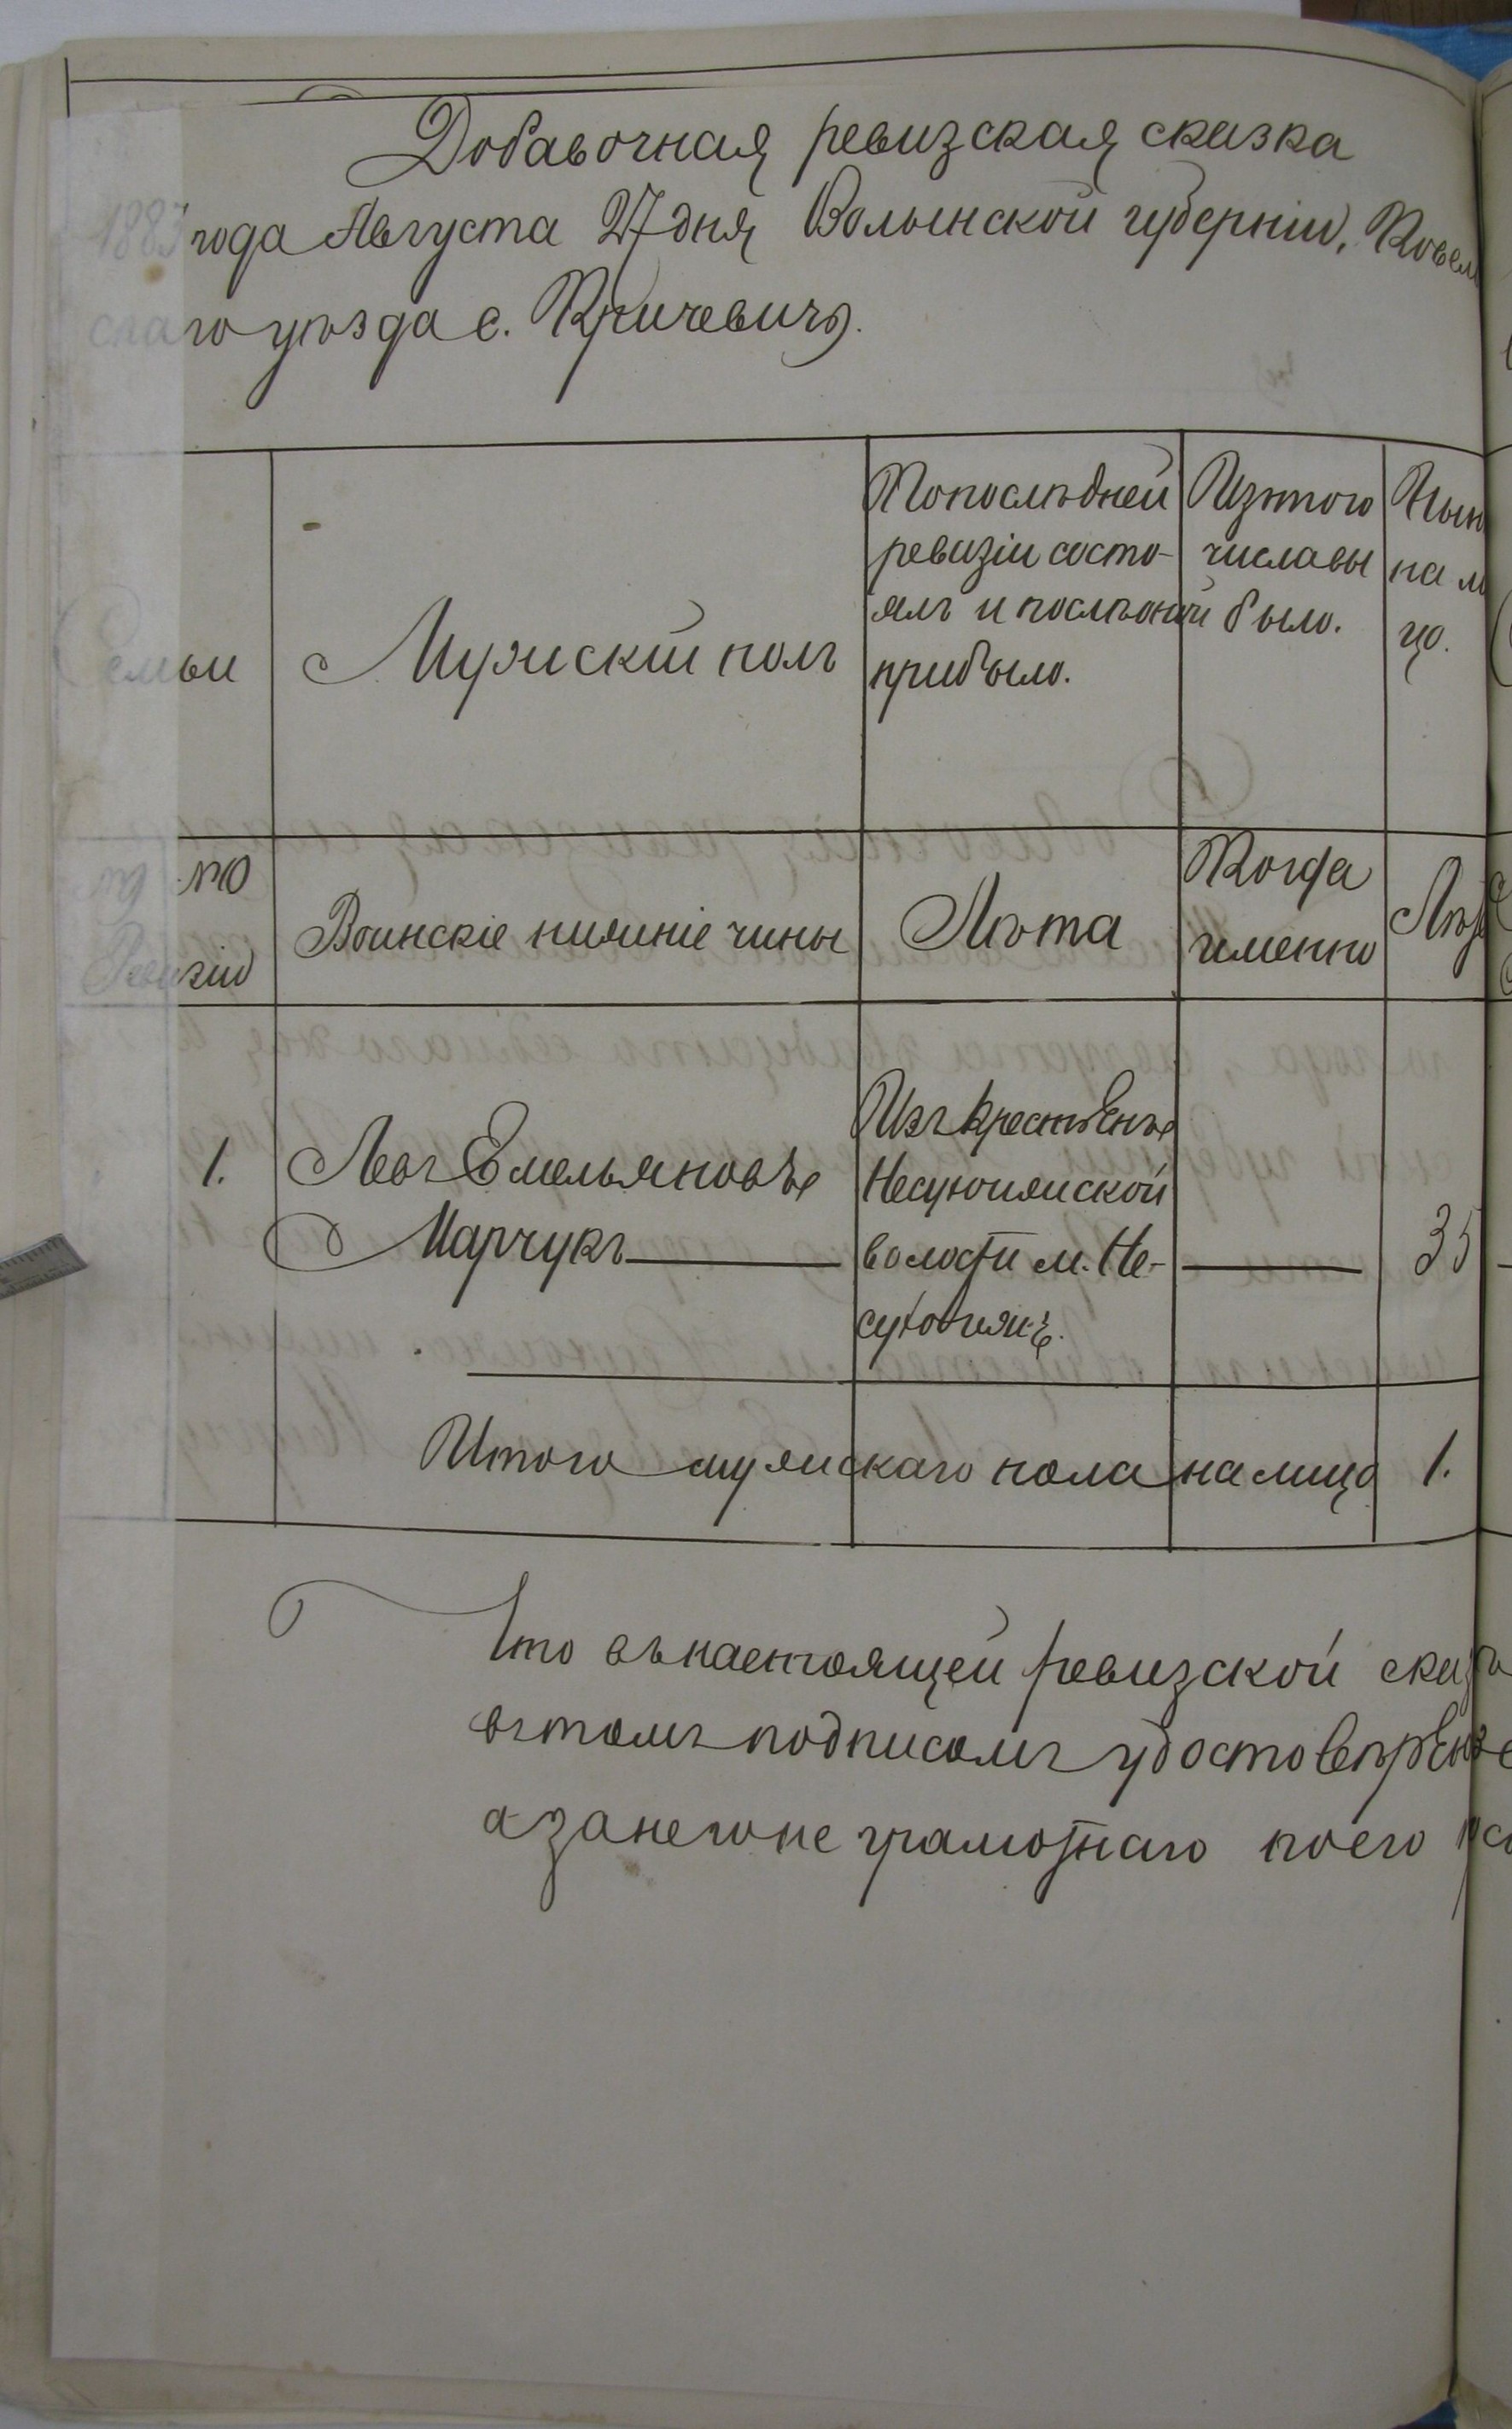 Добавочная ревизская сказка
1883 года Августа 27 дня Волынской губерніи, Ковел
скаго уѣзда с. Кричевичъ.
Семьи
Мужскій полъ
По послѣдней
ревизіи состо-
ялъ и послѣ оной
прибыло.
Изъ того
числа вы
было.
Нын
на ли
цо.
№
Ревизіи
Воинскіе нижніе чины
Лѣта
Когда
именно
Лѣт
1.
Левъ Емельяновъ
Марчукъ
Изъ крестьянъ
Несухоижской
волости м. Не-
сухоижъ.
35
Итого мужскаго пола на лицо 1.
Что въ настоящей ревизской сказ
въ томъ подписомъ удостовѣрен
а за него не грамотнаго по его